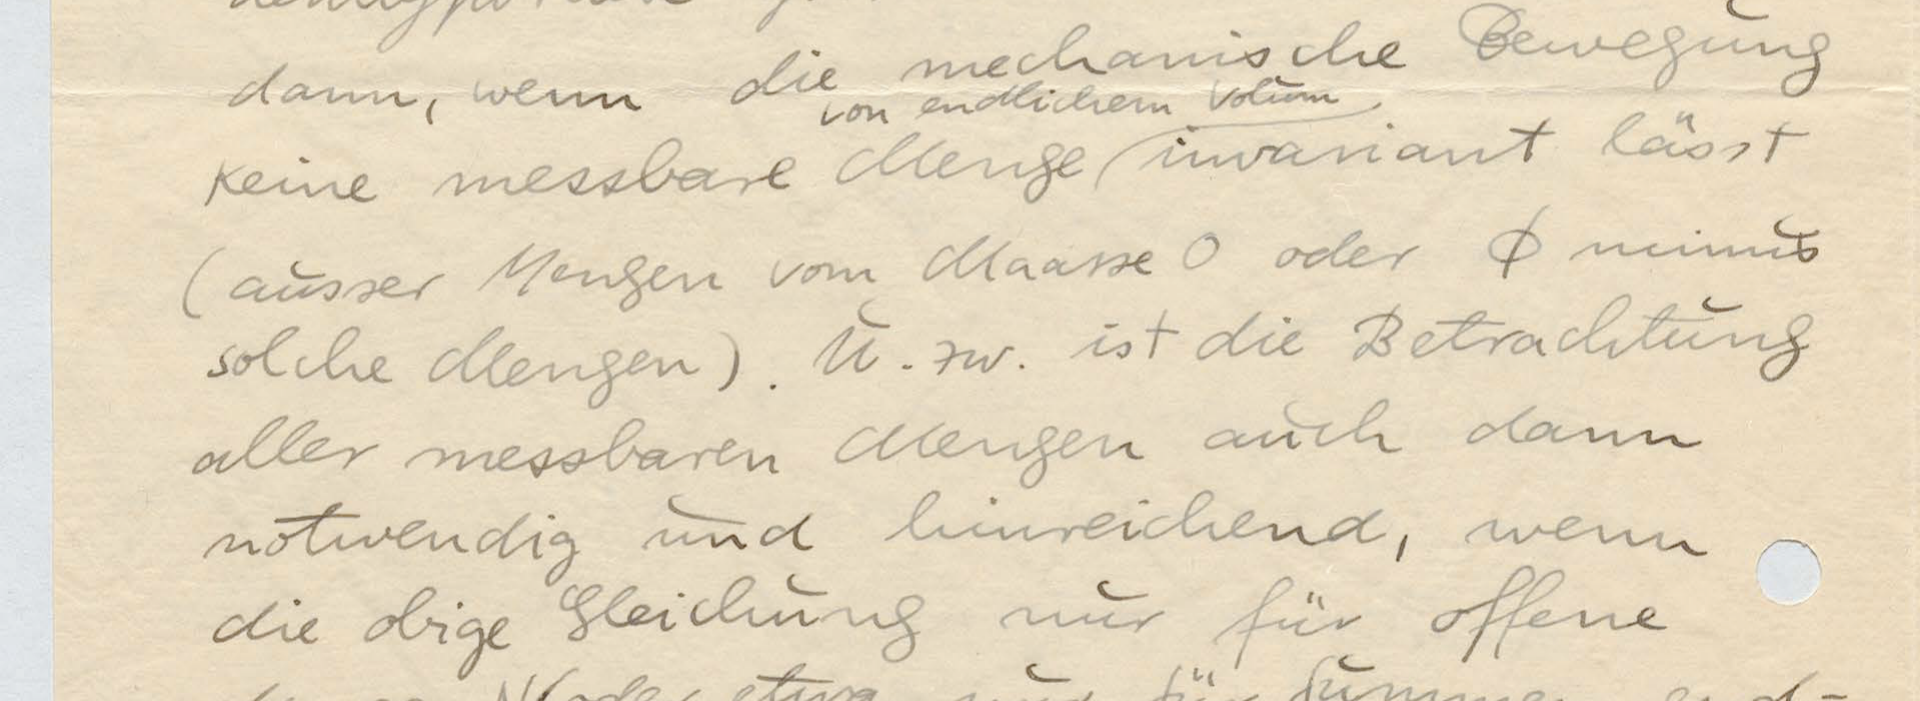 dann, wenn die mechanische Bewegung
von endlichem Volum
keine messbare Menge invariant lässt
(ausser Mengen vom Maasse 0 oder ϕ minus
solche Mengen). U. zw. ist die Betrachtung
aller messbaren Mengen auch dann
notwendig und hinreichend, wenn
die obige Gleichung nur für offene
etwa nur für Summen end-